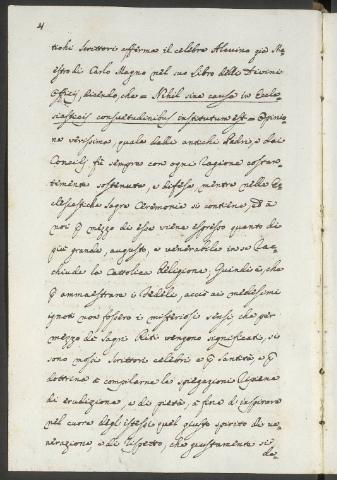 4
tichi Scrittori afferma il celebre Alcuino già Ma-
estro di Carlo Magno nel suo Libro delli Divini
Officij, dicendo, che = Nihil sine causa in Eccle-
siasticis consuetudinibus institutum est = Opinio-
ne verissima, quale dalli antichi Padri, e dai
Concilij fù sempre con ogni ragione costan-
temente sostenuta, e difesa, mentre nelle Ec-
clesiastiche Sagre Ceremonie si contiene, ed a
noi p mezzo di esse viene espresso quanto di
più grande, augusto, e venerabile in se rac-
chiude la Cattolica Religione. Quindi è, che
p ammaestrare i Fedeli, acciò ai medesimi
ignoti non fossero i misteriosi sensi che per
mezzo de Sagri Riti vengono significati, si
sono mossi Scrittori celebri e p santità, e p
dottrina a compilarne la spiegazione ripiena
di erudizione, e di pietà, a fine d'inspirare
nel cuore degl'istessi quel giusto spirito di ve-
nerazione, e di rispetto, che giustamente si
de-